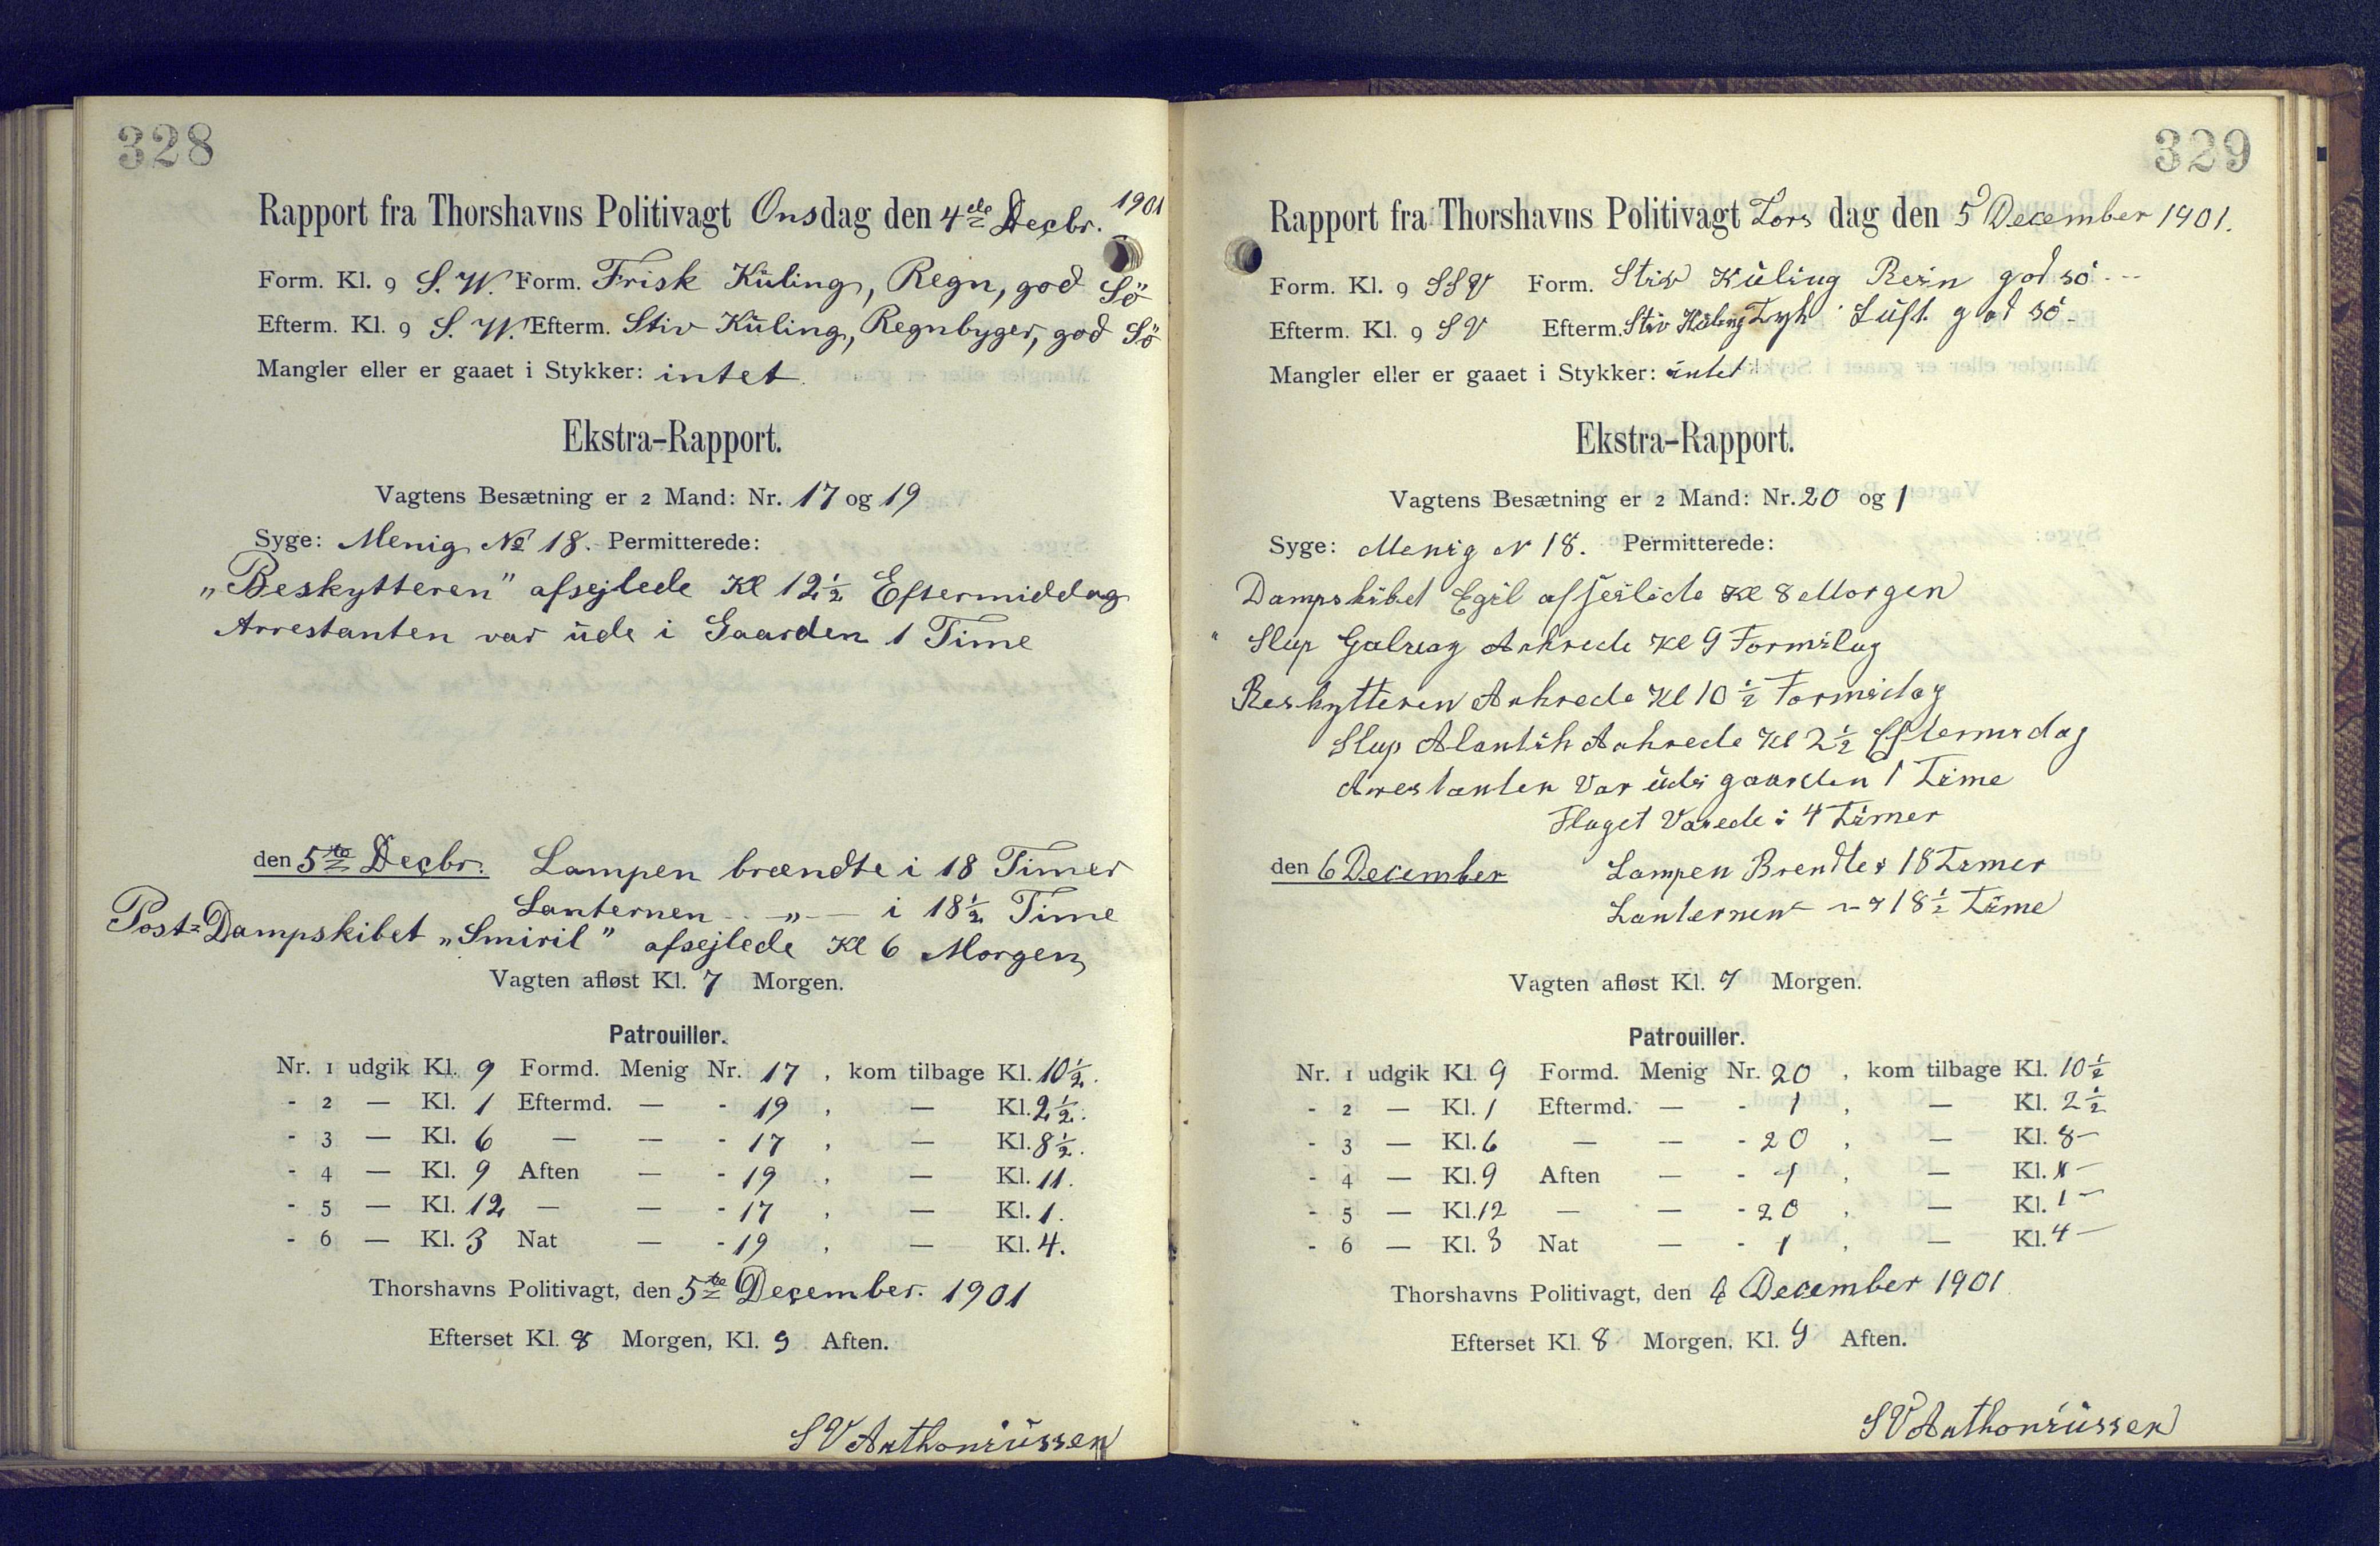 328
Rapport fra Thorshavns Politivagt Onsdag den 4de Decbr. 1901
Form. Kl. 9 S. W. Form. Frisk Kuling, Regn, god Sö
Efterm. Kl. 9 S. W. Efterm. Stiv Kuling, Regnbyger, god Sö
Mangler eller er gaaet i Stykker: intet
Ekstra-Rapport.
Vagtens Besætning er 2 Mand: Nr. 17 og 19
Syge: Menig No 18. Permitterede:
„Beskytteren" afsejlede Kl 12½ Eftermiddag
Arrestanten var ude i Gaarden 1 Time
den 5te Decbr. Lampen brændte i 18 Timer
Lanternen — „ — i 18½ Time
Post-Dampskibet „Smiril" afsejlede Kl 6 Morgen
Vagten afløst Kl. 7 Morgen.
Patrouiller.
Nr. 1 udgik Kl. 9 Formd. Menig Nr. 17, kom tilbage Kl. 10½.
- 2 — Kl. 1 Eftermd. — - 19, — Kl. 2½.
- 3 — Kl. 6 — — - 17, — Kl. 8½.
- 4 — Kl. 9 Aften — - 19, — Kl. 11.
- 5 — Kl. 12 — — - 17, — Kl. 1.
- 6 — Kl. 3 Nat — - 19, — Kl. 4.
Thorshavns Politivagt, den 5te December. 1901
Efterset Kl. 8 Morgen, Kl. 9 Aften.
S V Anthoniussen
329
Rapport fra Thorshavns Politivagt Tors dag den 5 December 1901.
Form. Kl. 9 SSV Form. Stiv Kuling Rein god sö
Efterm. Kl. 9 SV Efterm. Stiv Kuling Tyk Luft god sö
Mangler eller er gaaet i Stykker: intet
Ekstra-Rapport.
Vagtens Besætning er 2 Mand: Nr. 20 og 1
Syge: Menig N 18. Permitterede:
Dampskibet Egil afseilede Kl 8 Morgen
Slup Ankrede Kl 9 Formidag
Beskytteren Ankrede Kl 10½ Formidag
Slup Alantik Ankrede Kl 2½ Eftermidag
Arrestanten Var ude i gaarden 1 Time
Flaget Varede i 4 Timer
den 6 December Lampen Brendte i 18 Timer
Lanternen — „ i 18½ Time
Vagten afløst Kl. 7 Morgen.
Patrouiller.
Nr. 1 udgik Kl. 9 Formd. Menig Nr. 20, kom tilbage Kl. 10½
- 2 — Kl. 1 Eftermd. — - 1, — Kl. 2½
- 3 — Kl. 6 — — - 20, — Kl. 8 –
- 4 — Kl. 9 Aften — - 1, — Kl. 11 –
- 5 — Kl. 12 — — - 20, — Kl. 1 –
- 6 — Kl. 3 Nat — - 1, — Kl. 4 –
Thorshavns Politivagt, den 6 December 1901
Efterset Kl. 8 Morgen, Kl. 9 Aften.
S V Anthoniussen